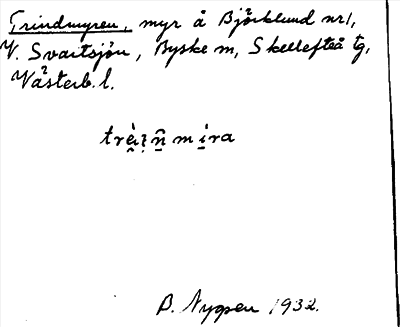 Grindmyren, myr å Björklund nr 1,
V. Svartsjön, Byske sn, Skellefteå tg,
Västerb. l.
B. Nygren 1932.